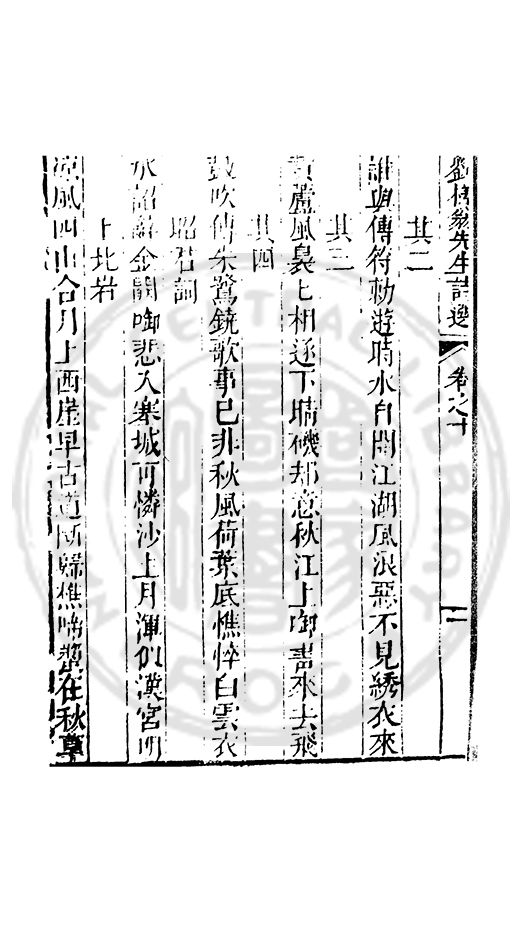 劉槎翁先生詩選 卷之十 二
其二
誰與傳符勅遊時水自開江湖風浪惡不見綉衣來
其三
蘆風裊上相逐下晴磯却意秋江上御書來去飛
其四
鼓吹傳朱鷺鐃歌事已非秋風荷葉底憔悴白雲衣
昭君詞
承詔辭金闕啣悲入寒城可憐沙上月渾似漢宮明
上北岩
涼風四山合月上西崖早古道斷歸樵啼螿在秋草